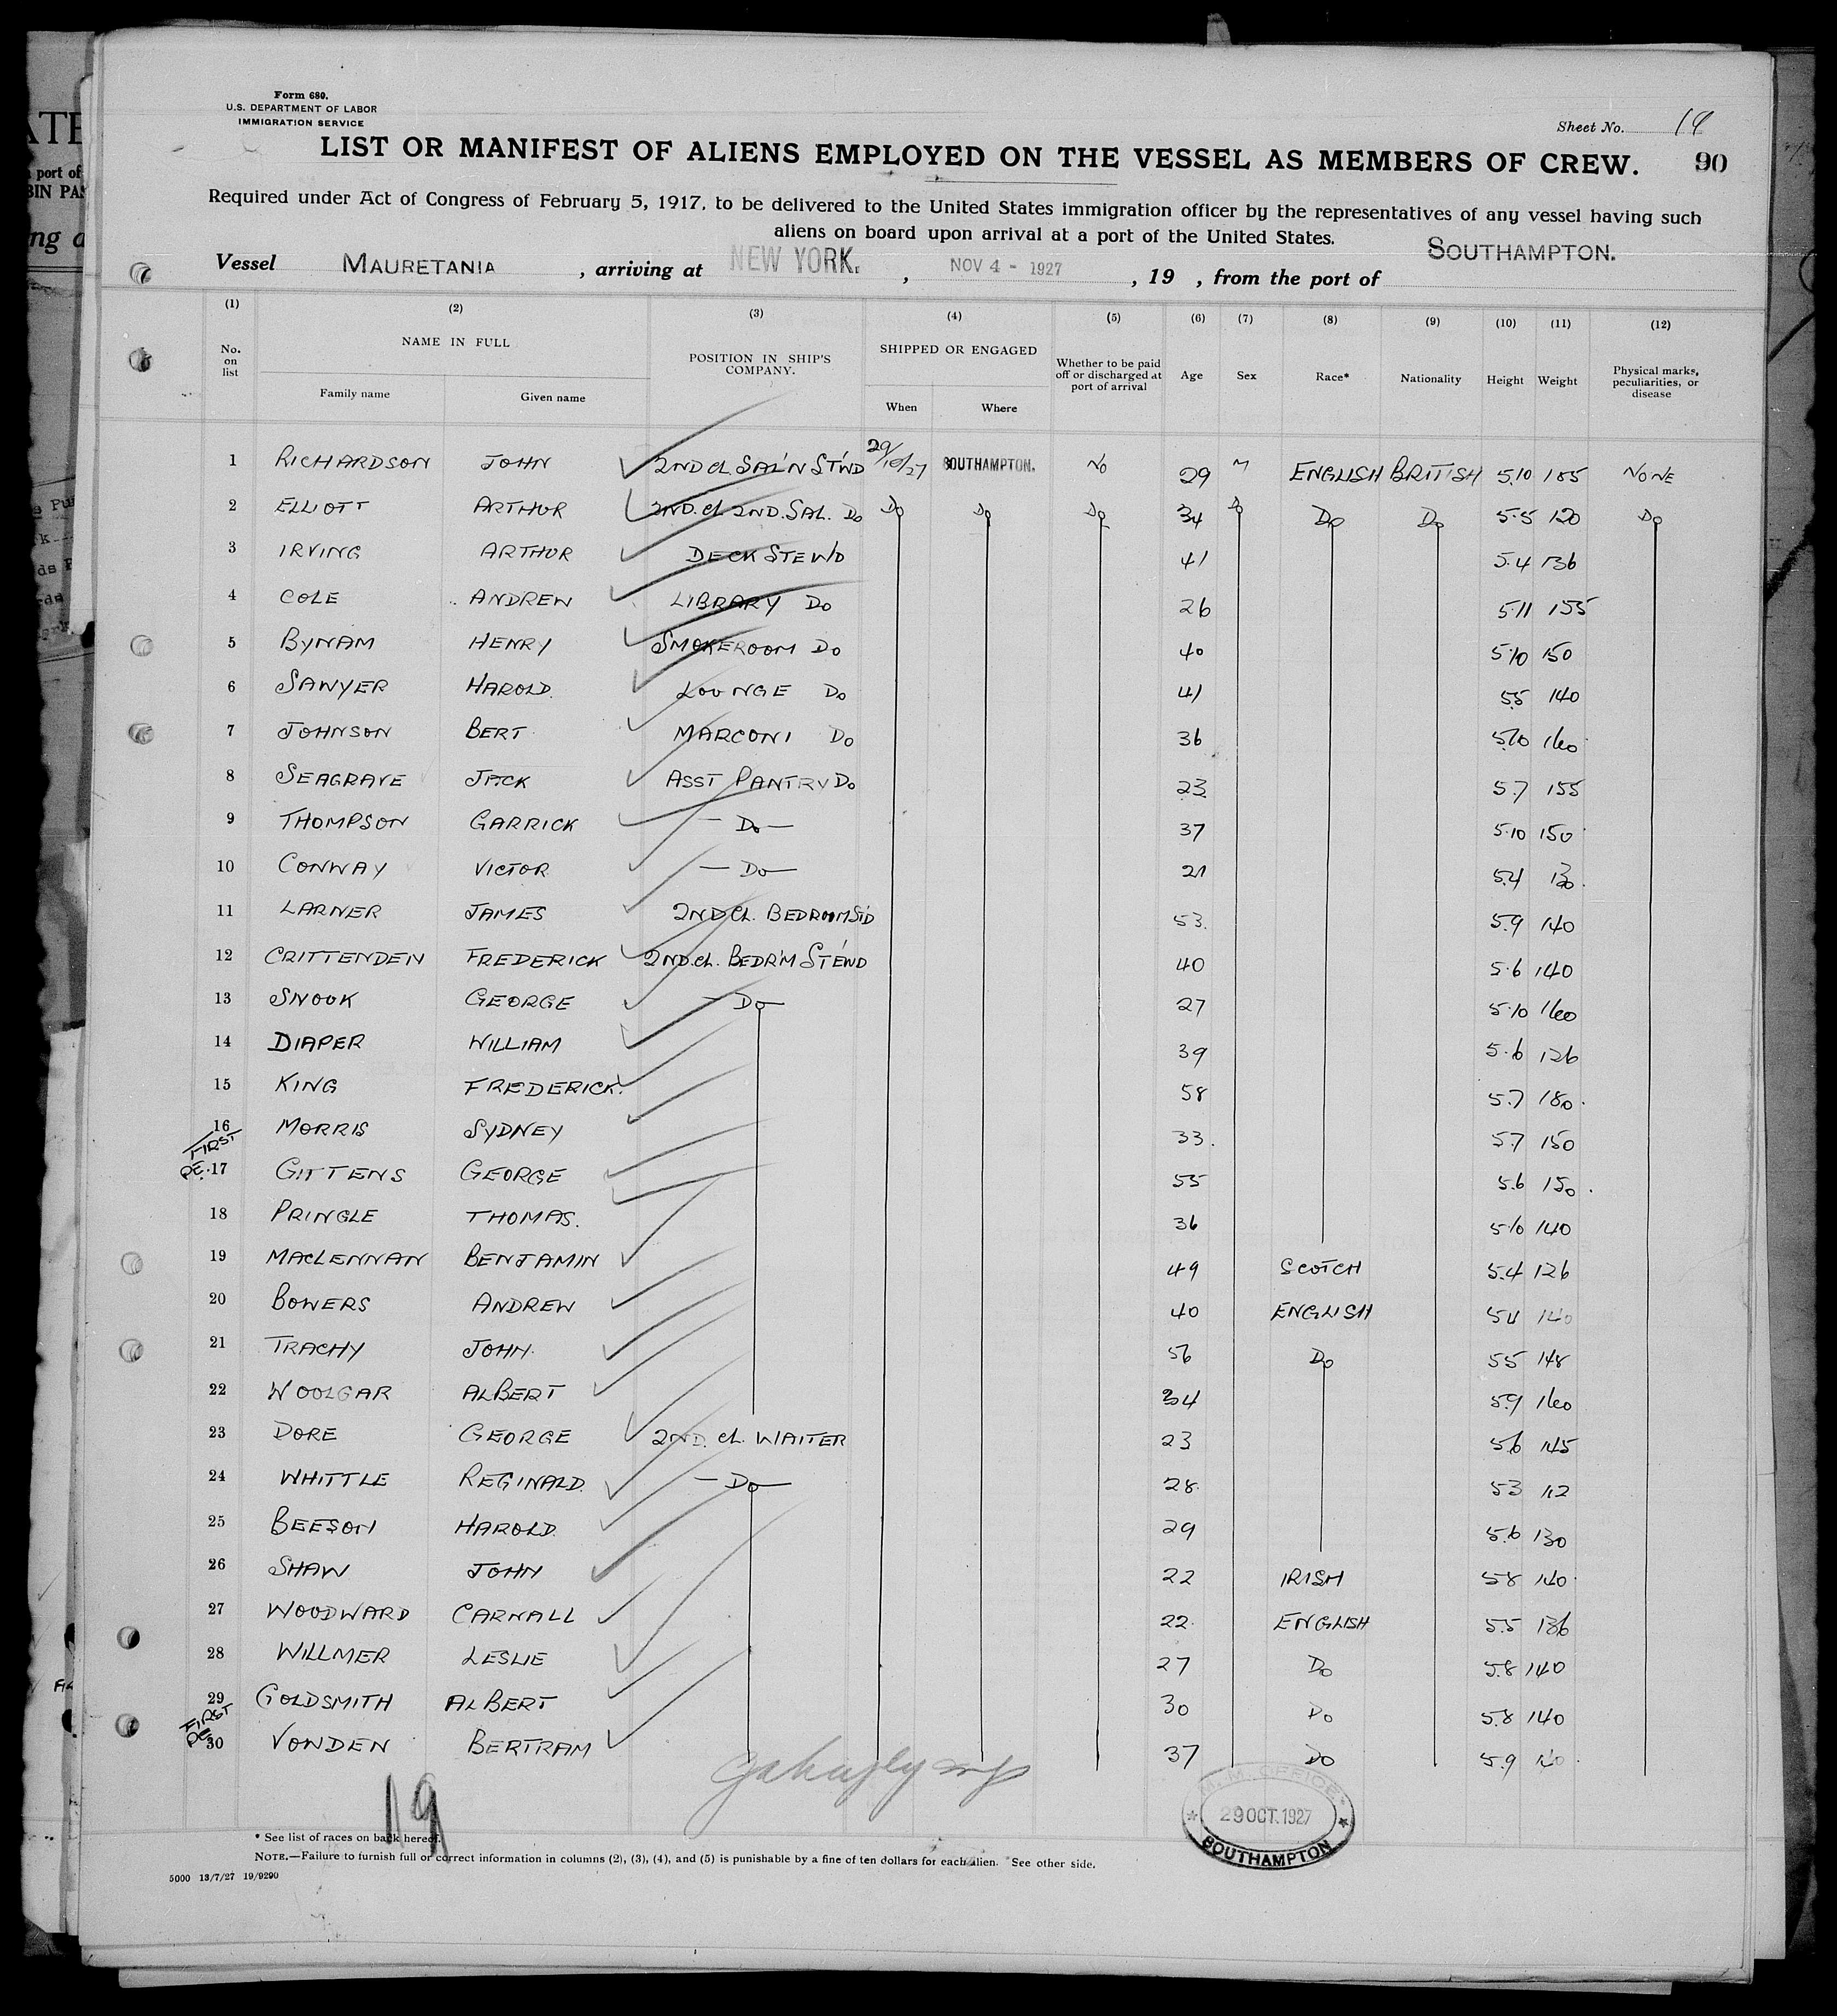 Form 680.
U.S. DEPARTMENT OF LABOR
IMMIGRATION SERVICE
Sheet No. 19
LIST OR MANIFEST OF ALIENS EMPLOYED ON THE VESSEL AS MEMBERS OF CREW. 90
Required under Act of Congress of February 5, 1917, to be delivered to the United States immigration officer by the representatives of any vessel having such
aliens on board upon arrival at a port of the United States.
Vessel MAURETANIA, arriving at NEW YORK., NOV 4 - 1927, 19 , from the port of SOUTHAMPTON.
(1) (2) (3) (4) (5) (6) (7) (8) (9) (10) (11) (12)
No. on list NAME IN FULL Family name Given name POSITION IN SHIP'S COMPANY. SHIPPED OR ENGAGED When Where Whether to be paid off or discharged at port of arrival Age Sex Race* Nationality Height Weight Physical marks, peculiarities, or disease
1 RICHARDSON JOHN 2ND CL SAL'N ST'WD 29/10/27 SOUTHAMPTON. NO 29 M ENGLISH BRITISH 5.10 185 NONE
2 ELLIOTT ARTHUR 2ND. CL 2ND. SAL. DO DO DO DO 34 DO DO DO 5.5 120 DO
3 IRVING ARTHUR DECK STEW'D 41 5.4 136
4 COLE ANDREW LIBRARY DO 26 5.11 155
5 BYNAM HENRY SMOKEROOM DO 40 5.10 150
6 SAWYER HAROLD. LOUNGE DO 41 5.5 140
7 JOHNSON BERT MARCONI DO 36 5.10 160
8 SEAGRAVE JACK ASST PANTRY DO 23 5.7 155
9 THOMPSON GARRICK — DO — 37 5.10 150
10 CONWAY VICTOR — DO — 21 5.4 130.
11 LARNER JAMES 2ND CL. BEDROOM S'D 53. 5.9 140
12 CRITTENDEN FREDERICK 2ND. CL. BEDR'M ST'EWD 40 5.6 140
13 SNOOK GEORGE — DO — 27 5.10 160
14 DIAPER WILLIAM 39 5.6 126
15 KING FREDERICK. 58 5.7 180.
16 MORRIS SYDNEY 33. 5.7 150
FIRST
17 GITTENS GEORGE 55 5.6 150.
18 PRINGLE THOMAS. 36 5.10 140
19 MACLENNAN BENJAMIN 49 SCOTCH 5.4 126
20 BOWERS ANDREW 40 ENGLISH 5.4 140
21 TRACHY JOHN. 56 DO 5.5 148
22 WOOLGAR ALBERT 34 5.9 160
23 DORE GEORGE 2ND. CL. WAITER 23 5.6 145
24 WHITTLE REGINALD. — DO — 28. 5.3 112
25 BEESON HAROLD. 29 5.6 130
26 SHAW JOHN 22 IRISH 5.8 140
27 WOODWARD CARNALL 22. ENGLISH 5.5 136
28 WILLMER LESLIE 27 DO 5.8 140
29 GOLDSMITH ALBERT 30 DO 5.8 140
FIRST
30 VONDEN BERTRAM 37 DO 5.9 140
19
29 OCT. 1927
SOUTHAMPTON
* See list of races on back hereof.
NOTE.—Failure to furnish full or correct information in columns (2), (3), (4), and (5) is punishable by a fine of ten dollars for each alien. See other side.
5000 13/7/27 19/9290